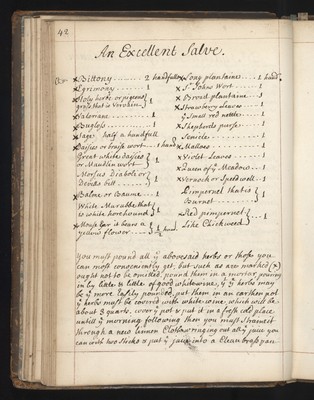 42
An Excellent Salve.
x Bittony ........ 2 handfulls
x Egrimony ...... 1
x Holy herbe or pigeons
grass that is Vervain } 1
x Valeriane ...... 1
x Bugloss ........ 1
x Sage half a handfull
x Daisies or bruise wort .. 1 hand
Great white daisies
or Maudlin wort } 1
Morsus Diaboli or
Devils bitt ...... } 1
x Balme or Baume .. 1
White Marubbe that
is white horehound } 1
x Mouse Ear it bears a
yellow flower .... } ½ hand.
x Long plantaine .... 1 hand
x St Johns Wort .... 1
x Broad plantaine .. 1
x Strawberry Leaves .. 1
ye Small red nettle .. 1
x Shepherds purse .. 1
x Senicle ........ 1
x Mallows ........ 1
x Violet Leaves .... 1
x Queen of ye Meadow .. 1
x Vernoch or Speedwell .. 1
Pimpernel that is
Burnet ...... } 1
x Red pimpernel
like Chickweed } 1
You must pound all ye abovesaid herbs or those you
can most conveniently get. but such as are marked (x)
ought not to be omitted. pound them in a mortar powring
in by little & little of good whitewine, yt ye herbs may
be ye more easily pounded, put them in an earthen pot
ye herbs must be covered with white wine, which will be
about 3 quarts. cover ye pot & put it in a fresh cold place
untill ye morning following then you must straine it
through a new linnen Cloth wringing out all ye juice you
can with two Sticks & put ye juice into a Clean brass pan